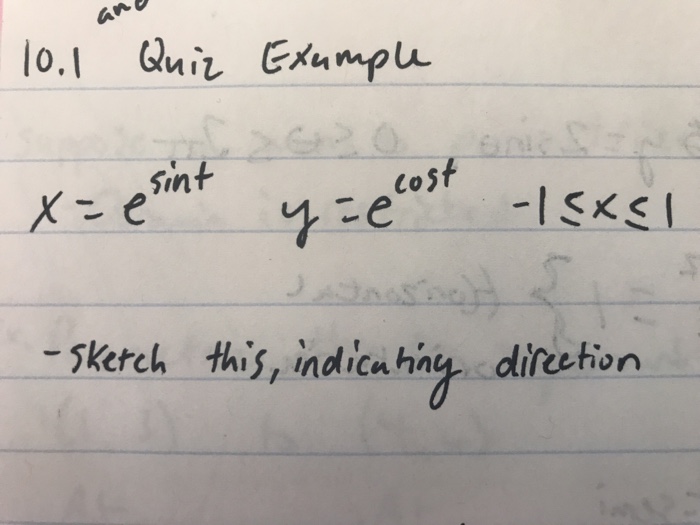 and
10.1 Quiz Example
x = e^sint y = e^cost -1 ≤ x ≤ 1
- sketch this, indicating direction